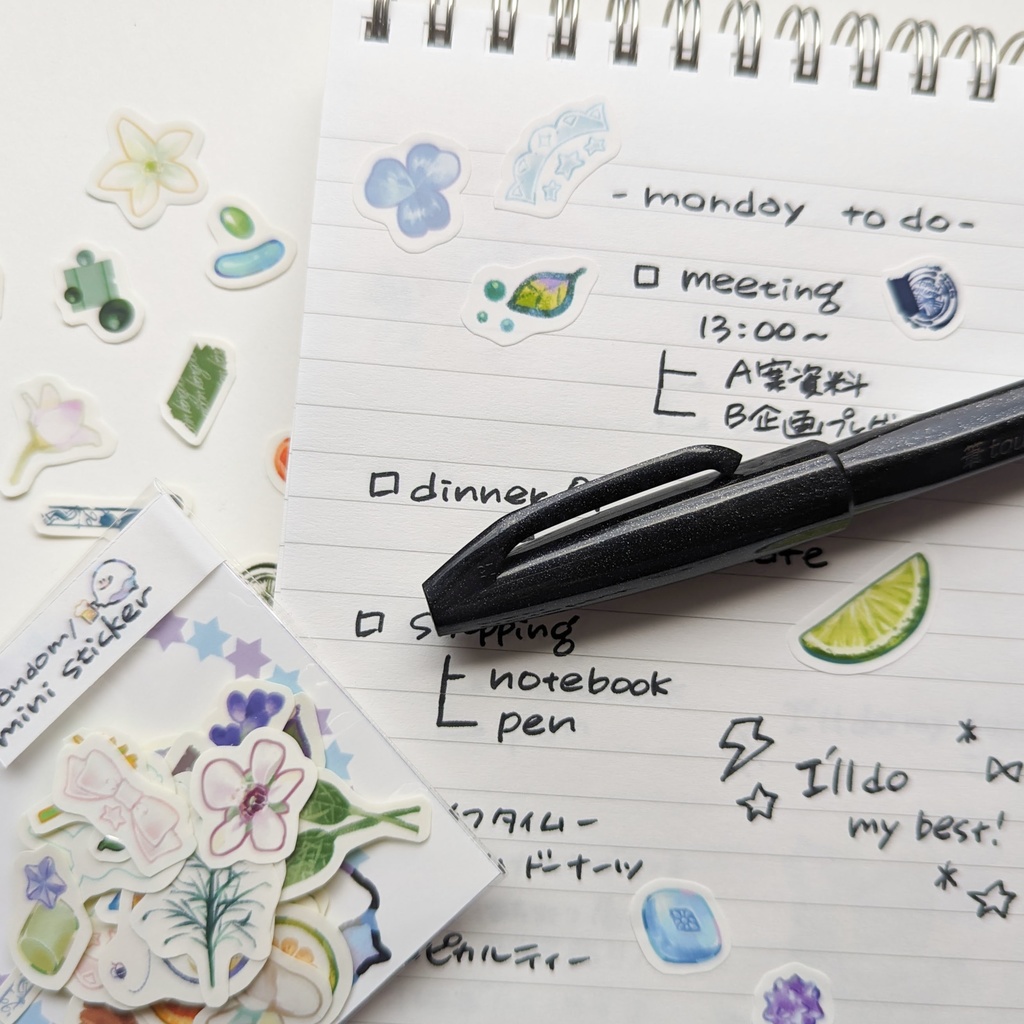 - monday to do -
□ meeting
13:00~
A案資料
B企画プレゼ
□ dinner
□ shopping
notebook
pen
I'll do
my best!
フタイム ー
ドーナーツ
ピカルティー
random/
mini sticker